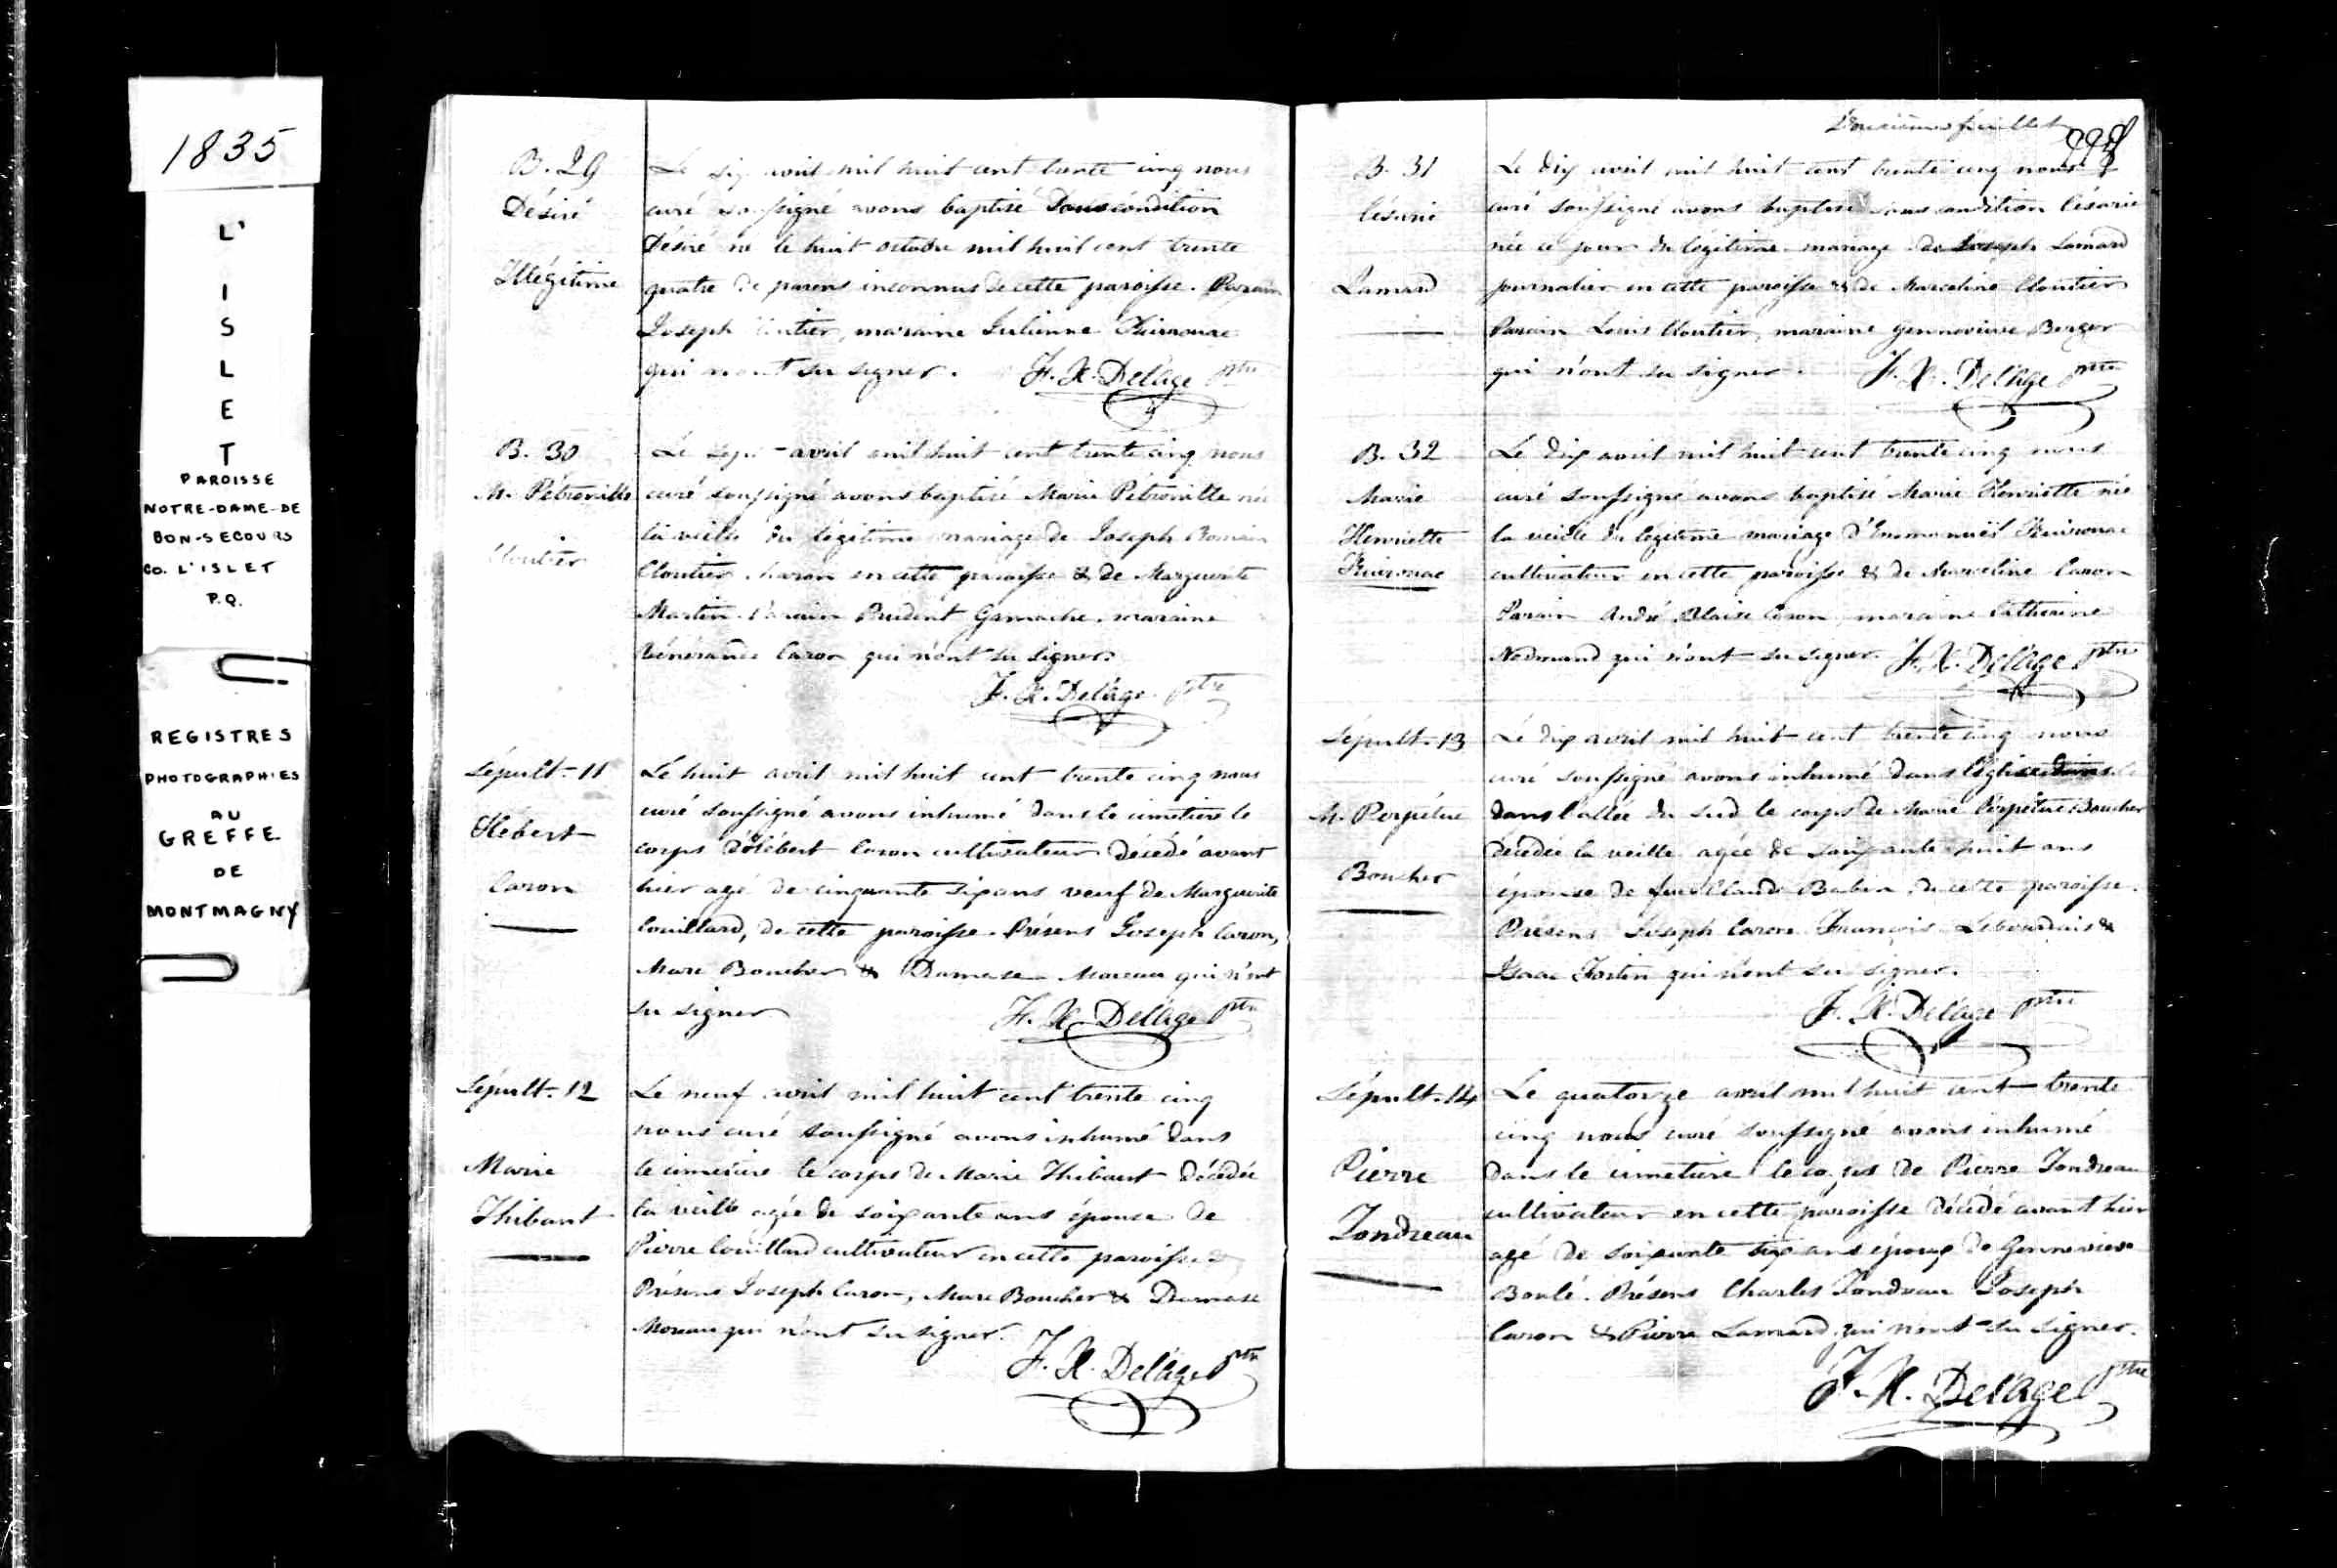 1835
L'
I
S
L
E
T
PAROISSE
NOTRE-DAME-DE
BON-SECOURS
CO. L'ISLET
P.Q.
REGISTRES
PHOTOGRAPHIES
AU
GREFFE
DE
MONTMAGNY
B. 29
Désiré
Illégitime
Le six avril mil huit cent trente cinq nous
curé soussigné avons baptisé sous condition
Désiré né le huit octobre mil huit cent trente
quatre de parens inconnus de cette paroisse. Parain
Joseph Cloutier, maraine Julienne Kuirouac
qui n'ont su signer. F. X. Delâge ptre
B. 30
M. Pétronille
Cloutier
Le sept avril mil huit cent trente cinq nous
curé soussigné avons baptisé Marie Pétronille née
la veille du légitime mariage de Joseph Romain
Cloutier charon en cette paroisse & de Marguerite
Martin. Parain Prudent Gamache, maraine
Vénérande Caron qui n'ont su signer.
F. X. Delâge ptre
Sépult. 11
Hébert
Caron
Le huit avril mil huit cent trente cinq nous
curé soussigné avons inhumé dans le cimetière le
corps d'Hébert Caron cultivateur décédé avant
hier agé de cinquante six ans veuf de Marguerite
Couillard, de cette paroisse. Présens Joseph Caron,
Marc Boucher & Damase Moreau qui n'ont
su signer F. X. Delâge ptre
Sépult. 12
Marie
Thibaut
Le neuf avril mil huit cent trente cinq
nous curé soussigné avons inhumé dans
le cimetière le corps de Marie Thibaut décédée
la veille agée de soixante ans épouse de
Pierre Couillard cultivateur en cette paroisse
Présens Joseph Caron, Marc Boucher & Damase
Moreau qui n'ont su signer.
F. X. Delâge ptre
feuillet
B. 31
Césarie
Lamard
Le dix avril mil huit cent trente cinq nous
curé soussigné avons baptisé sous condition Césarie
née ce jour du légitime mariage de Joseph Lamard
journalier en cette paroisse & de Marceline Cloutier
Parain Louis Cloutier, maraine Gennevieve Berger
qui n'ont su signer. F. X. Delâge ptre
B. 32
Marie
Henriette
Kuirouac
Le dix avril mil huit cent trente cinq nous
curé soussigné avons baptisé Marie Henriette née
la veille du légitime mariage d'Emmanuël Kuirouac
cultivateur en cette paroisse & de Marceline Caron
Parain André Blaise Caron, maraine Catherine
Nodmand qui n'ont su signer. F. X. Delâge ptre
Sépult. 13
M. Perpétue
Boucher
Le dix avril mil huit cent trente cinq nous
curé soussigné avons inhumé dans l'église
dans l'allée du sud le corps de Marie Perpétue Boucher
décédée la veille agée de soixante huit ans
épouse de feu Claude Babin de cette paroisse.
Présens Joseph Caron François Lebourdais &
Isaac Fortin qui n'ont su signer.
F. X. Delâge ptre
Sépult. 14
Pierre
Tondreau
Le quatorze avril mil huit cent trente
cinq nous curé soussigné avons inhumé
dans le cimetière le corps de Pierre Tondreau
cultivateur en cette paroisse décédé avant hier
agé de soixante six ans époux de Gennevieve
Boulé. Présens Charles Tondreau Joseph
Caron & Pierre Lamard qui n'ont su signer.
F. X. Delâge ptre